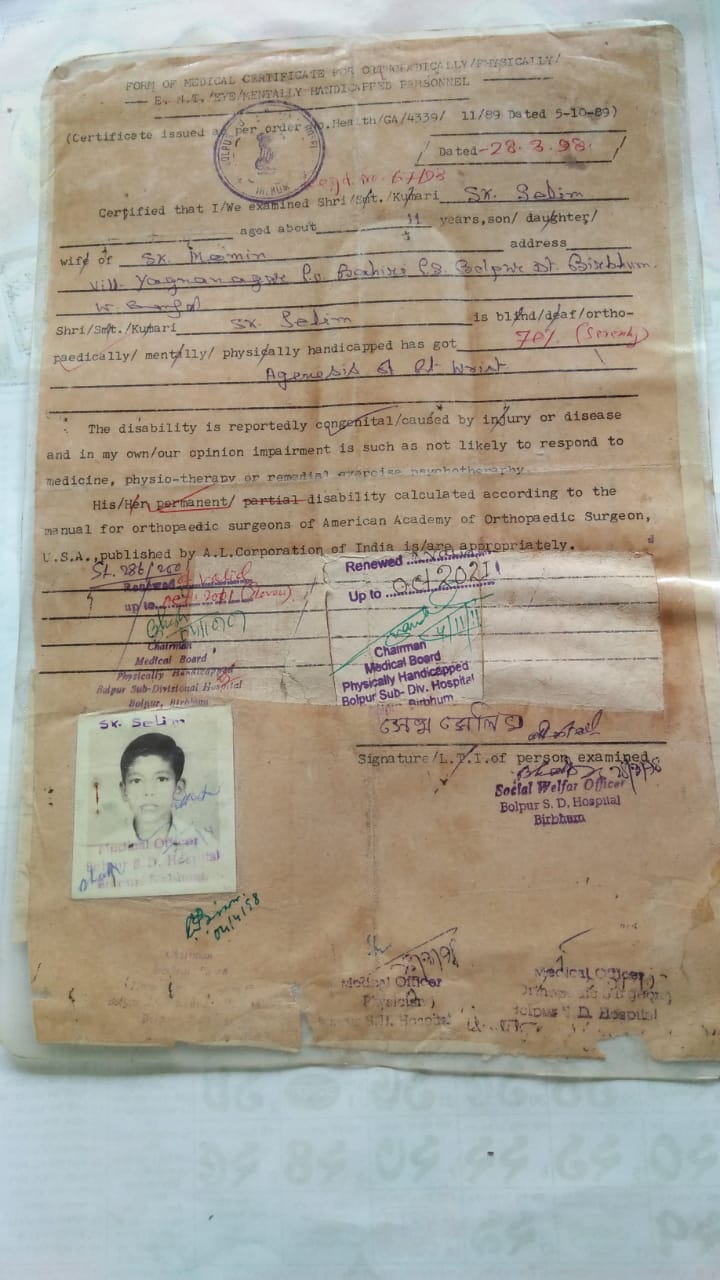 FORM OF MEDICAL CERTIFICATE FOR ORTHOPAEDICALLY/PHYSICALLY/
E. N.T./EYE/MENTALLY HANDICAPPED PERSONNEL
(Certificate issued as per order No.Health/GA/4339/ 11/89 Dated 5-10-89)
Dated-28.3.98.
Certified that I/We examined Shri/Smt./Kumari Sk. Selim
aged about 11 years, son/ daughter/
wife of Sk. Momin address
Vill- P.O. P.S. Bolpur Dt. Birbhum.
W. Bengal
Shri/Smt./Kumari Sk. Selim is blind/deaf/ortho-
paedically/ mentally/ physically handicapped has got 70% (Seventy)
Agenesis of Wrist
The disability is reportedly congenital/caused by injury or disease
and in my own/our opinion impairment is such as not likely to respond to
medicine, physio-therapy or remedial exercise psychotherapy.
His/Her permanent/ partial disability calculated according to the
manual for orthopaedic surgeons of American Academy of Orthopaedic Surgeon,
U.S.A.,published by A.L.Corporation of India is/are appropriately.
Renewed
up to
Chairman
Medical Board
Physically Handicapped
Bolpur Sub-Divisional Hospital
Bolpur, Birbhum
Renewed
Up to Oct 2021
Chairman
Medical Board
Physically Handicapped
Bolpur Sub- Div. Hospital
Birbhum
সেখ সেলিম
Signature/L.T.I.of person examined
Social Welfar Officer
Bolpur S. D. Hospital
Birbhum
Sk. Selim
Medical Officer
Bolpur S.D. Hospital
04/4/98
Medical Officer
Physician
S.D. Hospital
Medical Officer
Bolpur S.D. Hospital